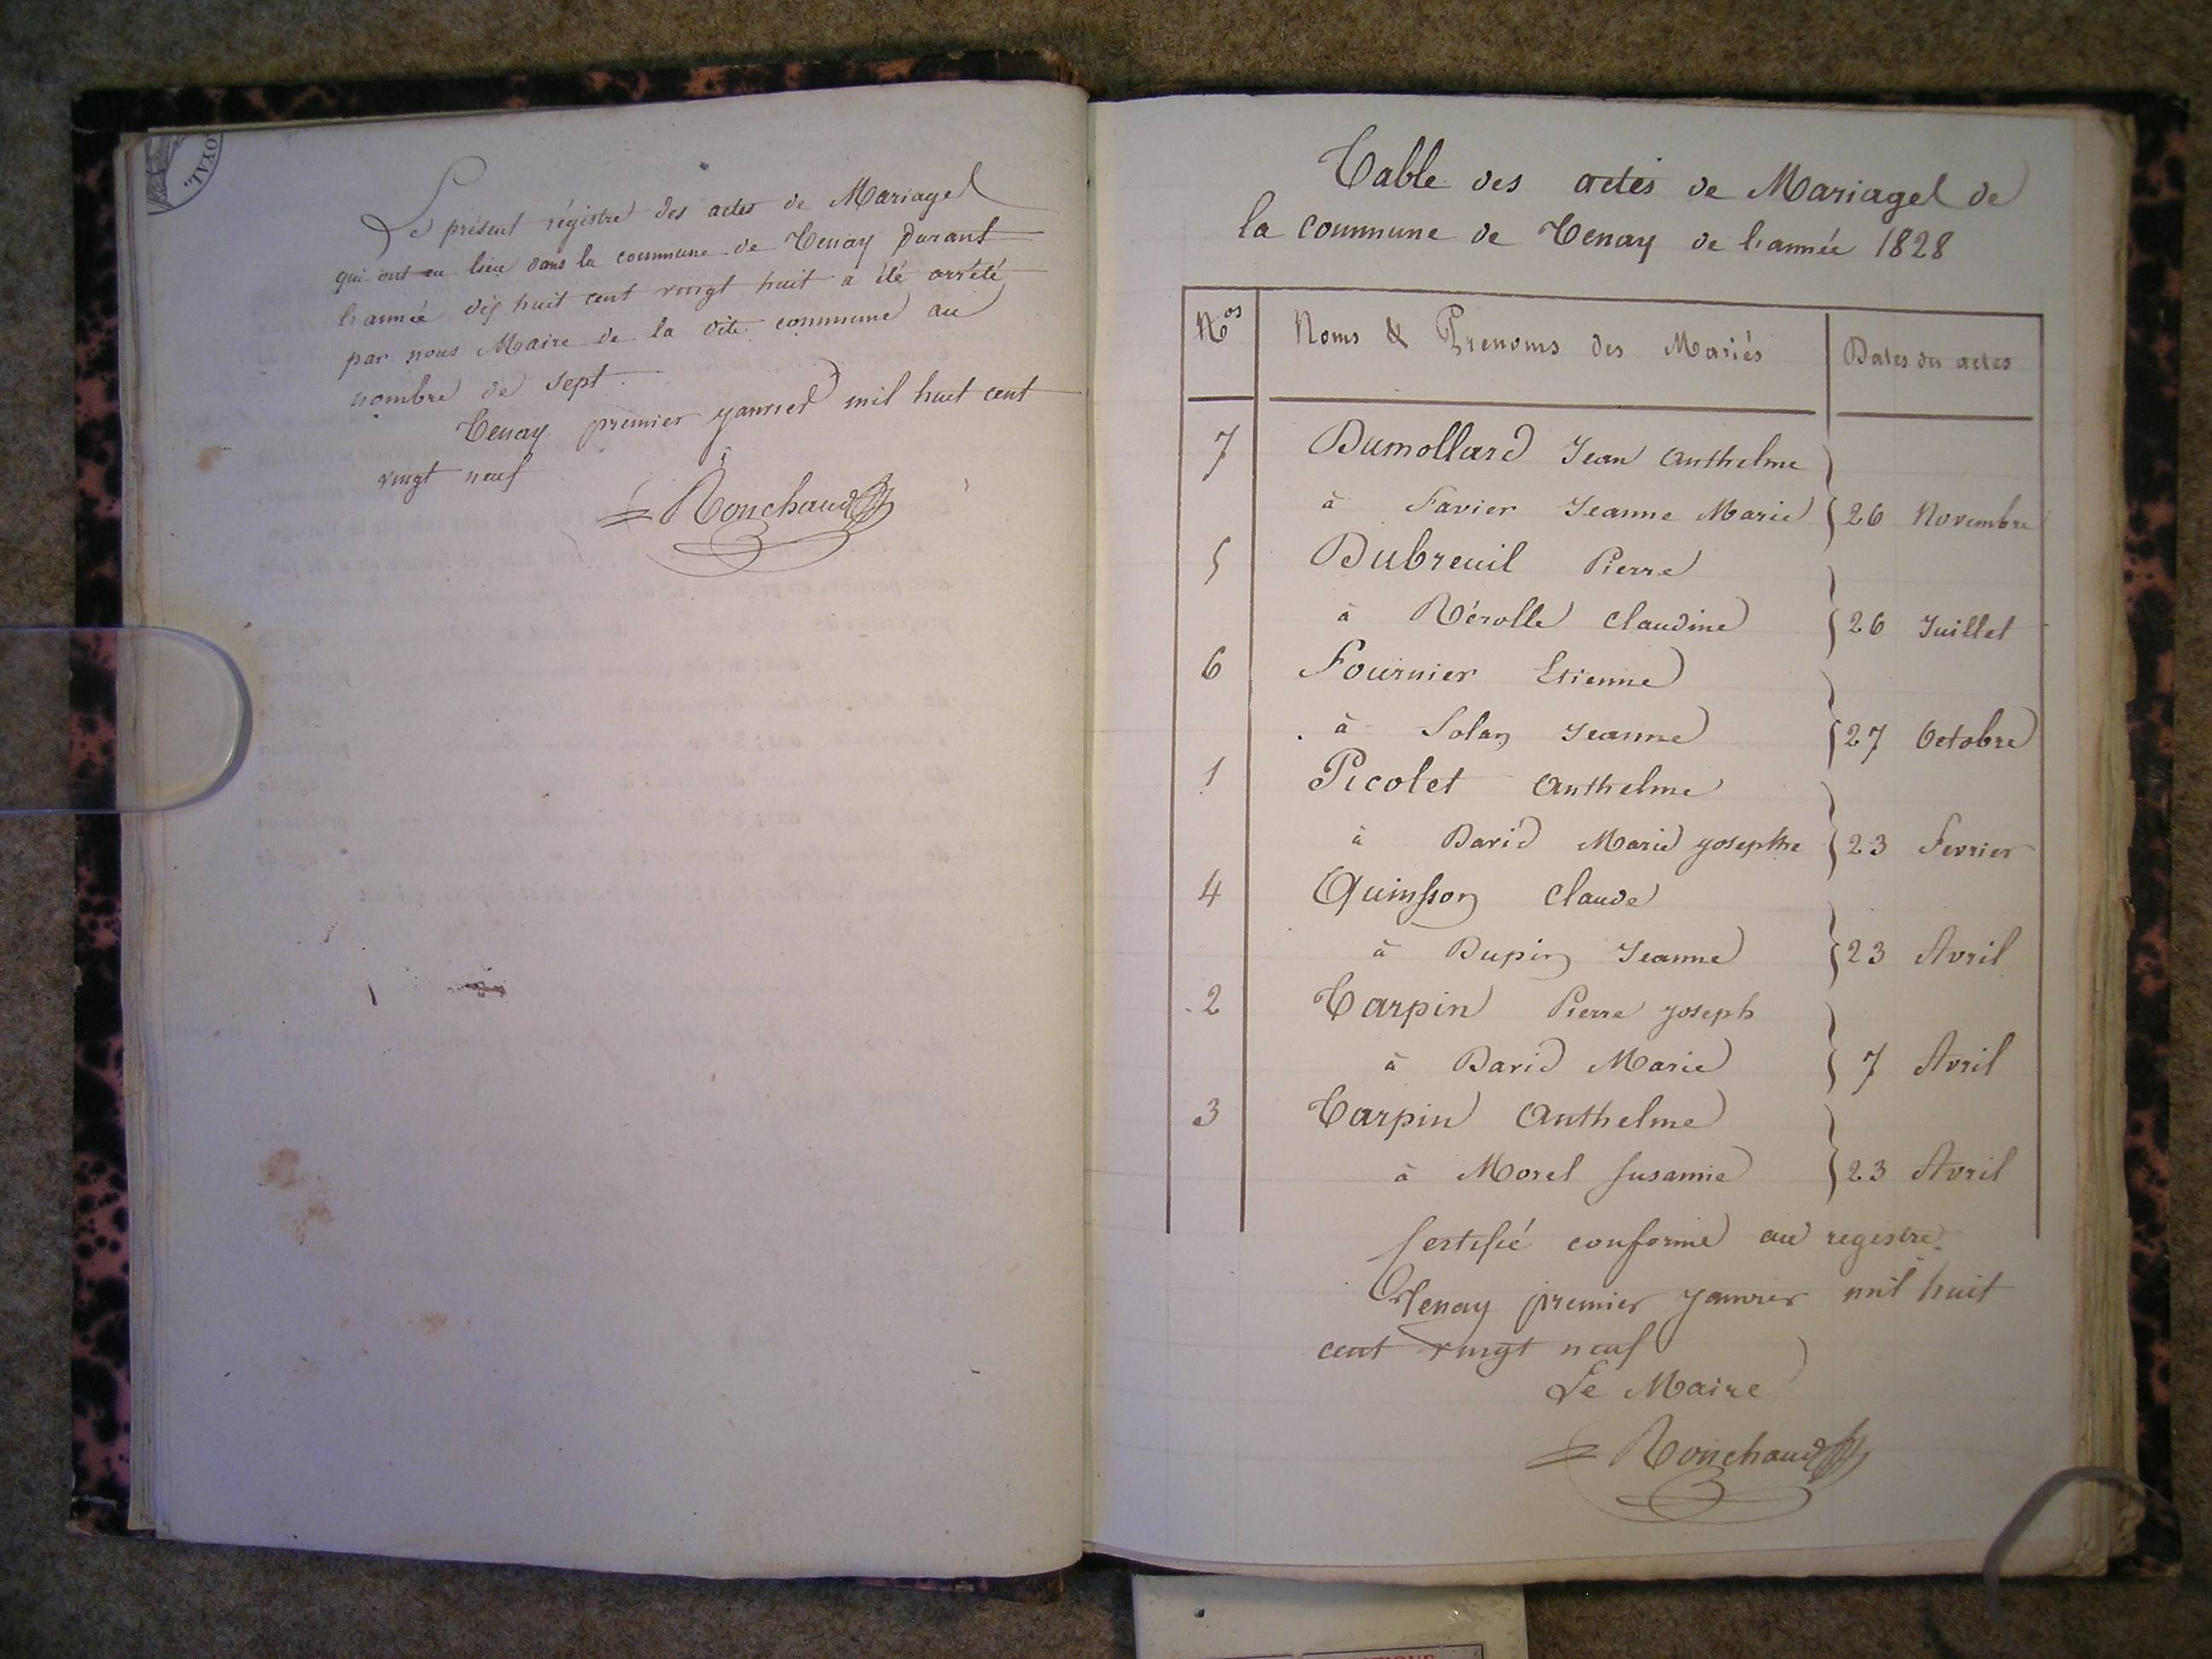 OYAL.
Le présent régistre des actes de Mariage
qui ont eu lieu dans la commune de Tenay Durant
l'année dix huit cent vingt huit a été arrêté
par nous Maire de la dite commune au
nombre de sept.
Tenay premier janvier mil huit cent
vingt neuf
Ronchaud
Table des actes de Mariage de
la commune de Tenay de l'année 1828
Nos Noms & Prenoms des Mariés Dates des actes
7 Dumollard Jean Anthelme
à Favier Jeanne Marie 26 Novembre
5 Dubreuil Pierre
à Rérolle Claudine 26 Juillet
6 Fournier Etienne
à Solan Jeanne 27 Octobre
1 Picolet Anthelme
à David Marie josephte 23 Fevrier
4 Quinsson Claude
à Dupin Jeanne 23 Avril
2 Tarpin Pierre joseph
à David Marie 7 Avril
3 Tarpin Anthelme
à Morel Susanne 23 Avril
Certifié conforme au registre.
Tenay premier janvier mil huit
cent vingt neuf
Le Maire
Ronchaud